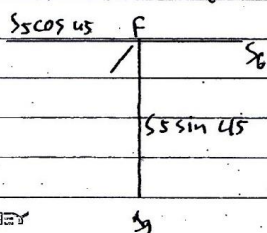 S5cos 45 F
S6
S5 sin 45
S9